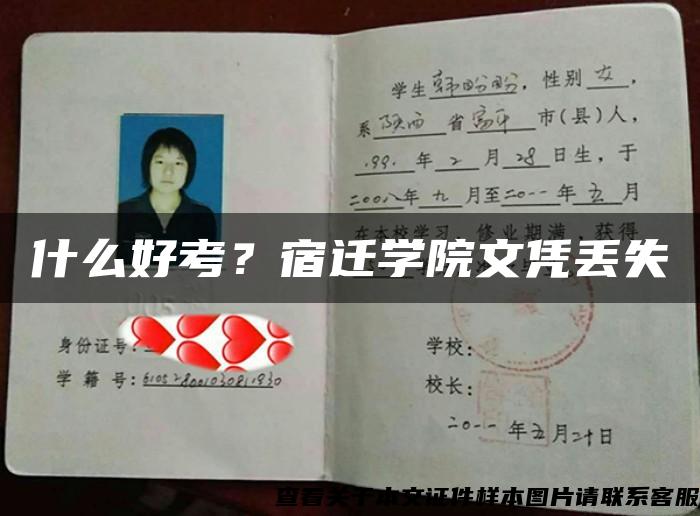 学生韩盼盼，性别女，
系陕西省富平市(县)人，
199.年2月28日生，于
二00八年九月至二0一一年五月
在本校学习，修业期满，获得
什么好考？宿迁学院文凭丢失
身份证号：
学籍号：610528001030811930
学校：
校长：
二0一一年五月二十日
查看关于本文证件样本图片请联系客服